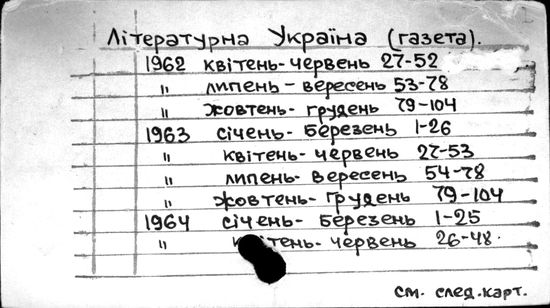 Літературна Україна (газета).
1962 квітень-червень 27-52
" липень-вересень 53-78
" жовтень-грудень 79-104
1963 січень-березень 1-26
" квітень-червень 27-53
" липень-вересень 54-78
" жовтень-грудень 79-104
1964 січень-березень 1-25
" квітень-червень 26-48.
см. след. карт.